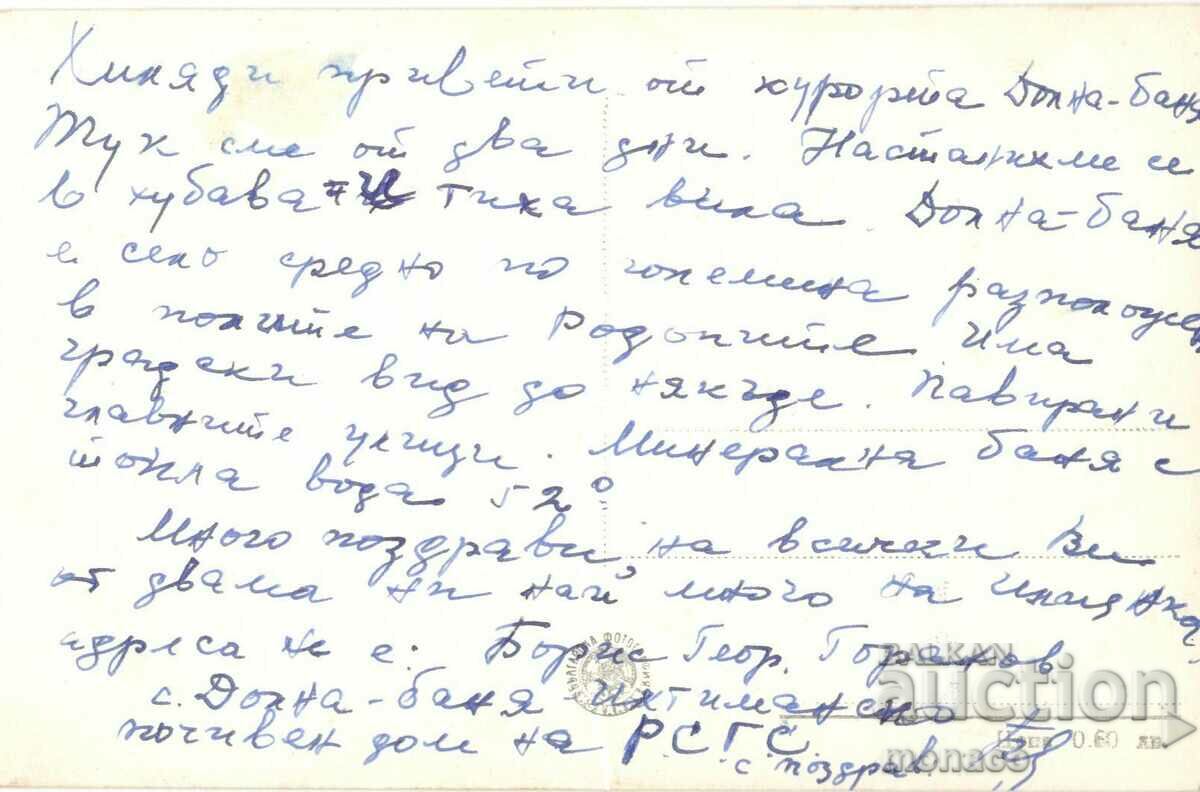 Хиляди привети от курорта Долна-баня
Тук сме от два дни. Настанихме се
в хубава и тиха вила. Долна-баня
е село средно по големина разположен
в полите на Родопите. Има
градски вид до някъде. Павирани
главните улици. Минерална баня с
топла вода 52°
Много поздрави на всички Ви
от двама ни най много на
адреса ни е: Борис Геор.
с. Долна-баня Ихтиманско
почивен дом на Р.С.Г.С.
с поздрав
Цена 0.60 лв.
BALKAN
auction
monaco